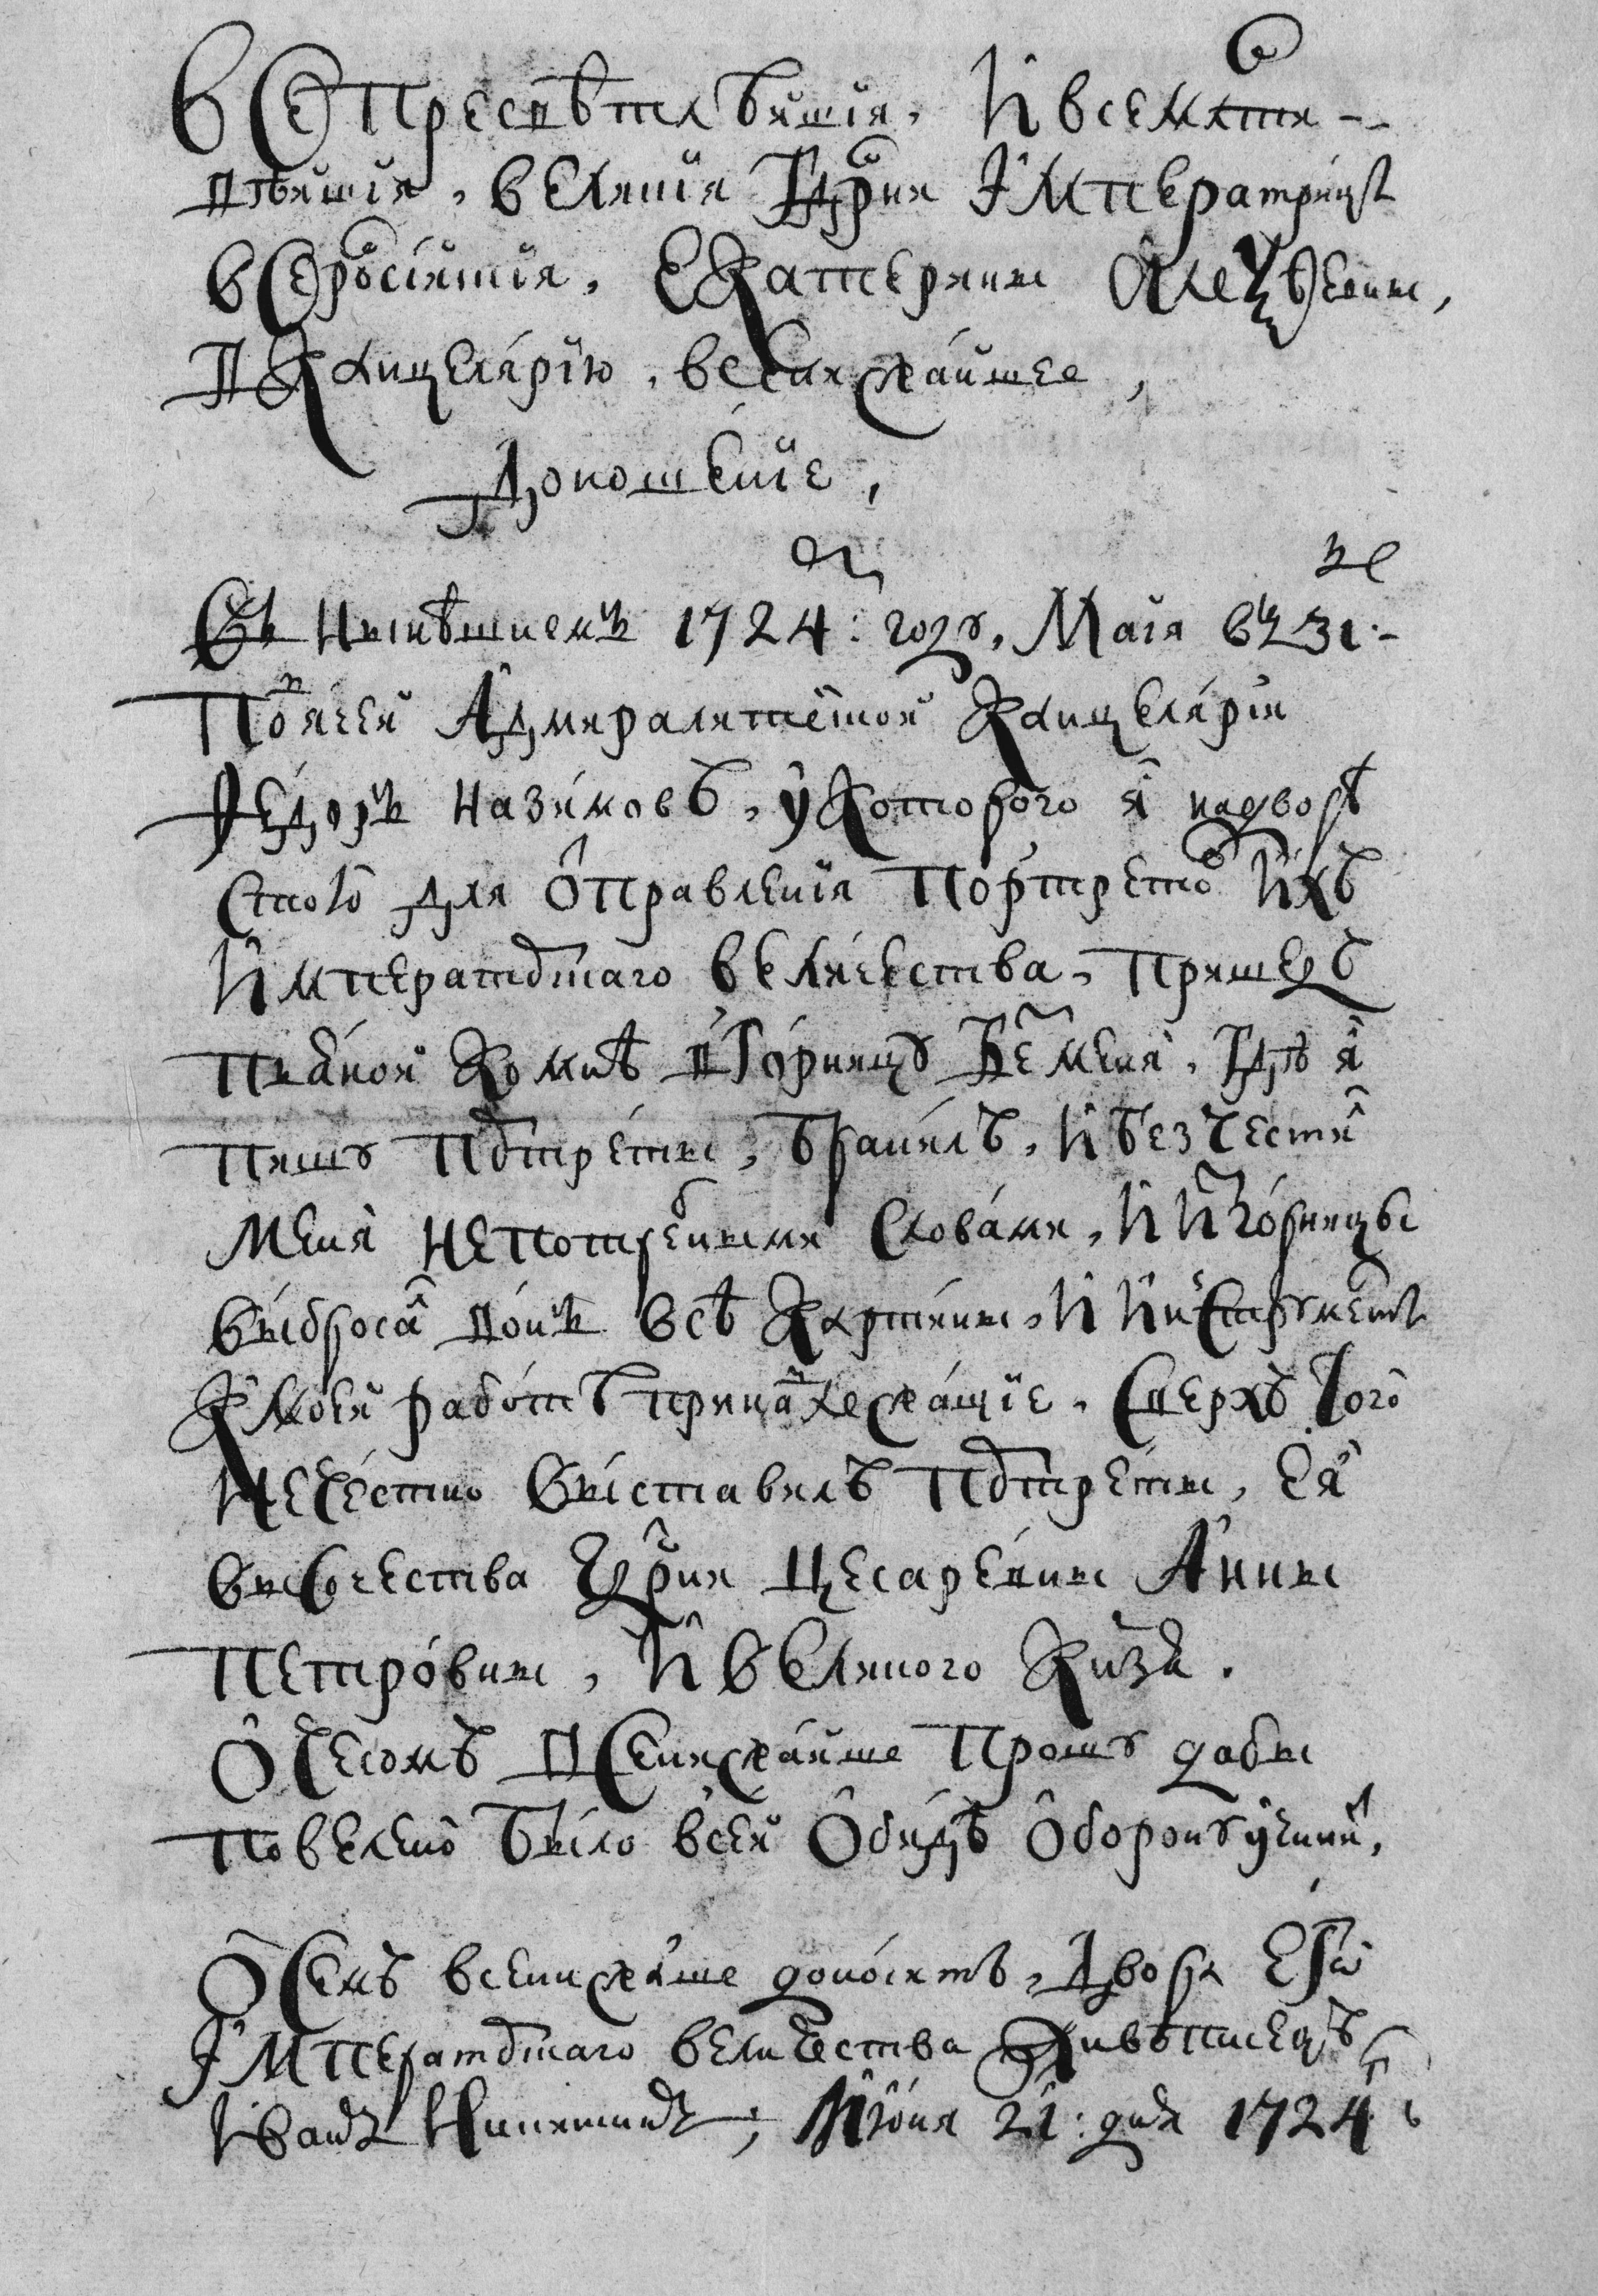 Всепресвѣтлѣйшия, И всемлти-
вѣйшия, великия Гдрни Імператрицы
Всеросійския, Екатерины Алеѯѣевны,
В Канцелярію, всенижайшее,
Доношение,
Въ нынѣшнемъ 1724: году, Маія въ 31:-
Подьячей Адмиралитейской Канцелярии
Ѳедоръ Назимовъ, у которого я на дворѣ
стою для ѻправления портретов Ихъ
Императорскаго Величества, пришедъ
пьяной ко мнѣ в горницу без меня, гдѣ я
пишу портреты, бранилъ, и безчестил
меня непотребными словами, и из горницы
выбросал вонъ всѣ картины, и инструменты
к моей работѣ принадлежащие, сверхъ того
нечестно выставилъ портреты, Ея
Высочества Гдрни Цесаревны Анны
Петровны, и великого Кнзя.
Ѻ чесомъ всенижайше прошу дабы
повелено было в сей ѻбидѣ ѻборону учинит,
Ѻ семъ всенижайше доноситъ, двора Его
Імператорскаго величества живописецъ
Иванъ Никитинъ, Июня 21: дня 1724 г